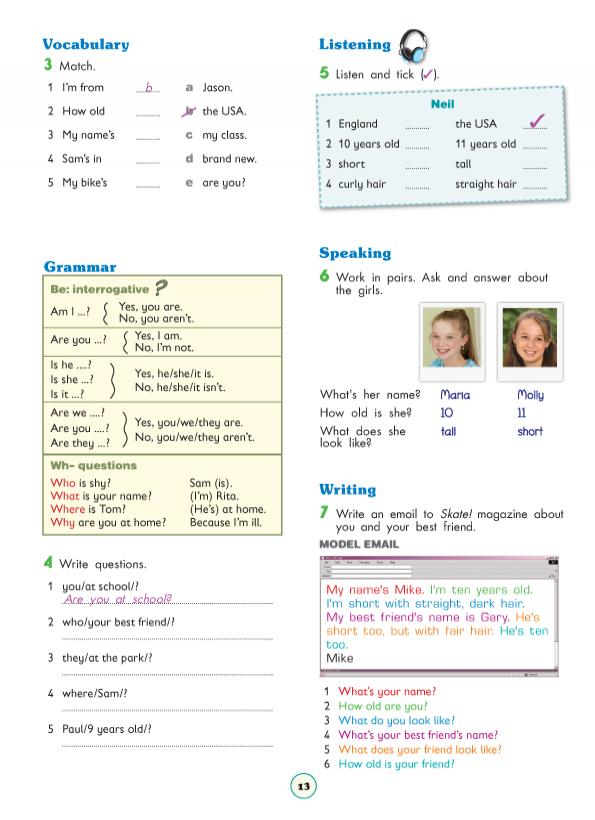 Vocabulary
3 Match.
1 I'm from ........ b a Jason.
2 How old ........ b the USA.
3 My name's ........ c my class.
4 Sam's in ........ d brand new.
5 My bike's ........ e are you?
Grammar
Be: interrogative ?
Am I ...? Yes, you are.
No, you aren't.
Are you ...? Yes, I am.
No, I'm not.
Is he ....?
Is she ...?
Is it ...?
Yes, he/she/it is.
No, he/she/it isn't.
Are we ....?
Are you ....?
Are they ...?
Yes, you/we/they are.
No, you/we/they aren't.
Wh- questions
Who is shy? Sam (is).
What is your name? (I'm) Rita.
Where is Tom? (He's) at home.
Why are you at home? Because I'm ill.
4 Write questions.
1 you/at school/?
Are you at school?
2 who/your best friend/?
3 they/at the park/?
4 where/Sam/?
5 Paul/9 years old/?
Listening
5 Listen and tick (✓).
Neil
1 England ........ the USA ✓
2 10 years old ........ 11 years old ........
3 short ........ tall ........
4 curly hair ........ straight hair ........
Speaking
6 Work in pairs. Ask and answer about
the girls.
What's her name? Maria Molly
How old is she? 10 11
What does she tall short
look like?
Writing
7 Write an email to Skate! magazine about
you and your best friend.
MODEL EMAIL
My name's Mike. I'm ten years old.
I'm short with straight, dark hair.
My best friend's name is Gary. He's
short too, but with fair hair. He's ten
too.
Mike
1 What's your name?
2 How old are you?
3 What do you look like?
4 What's your best friend's name?
5 What does your friend look like?
6 How old is your friend?
13